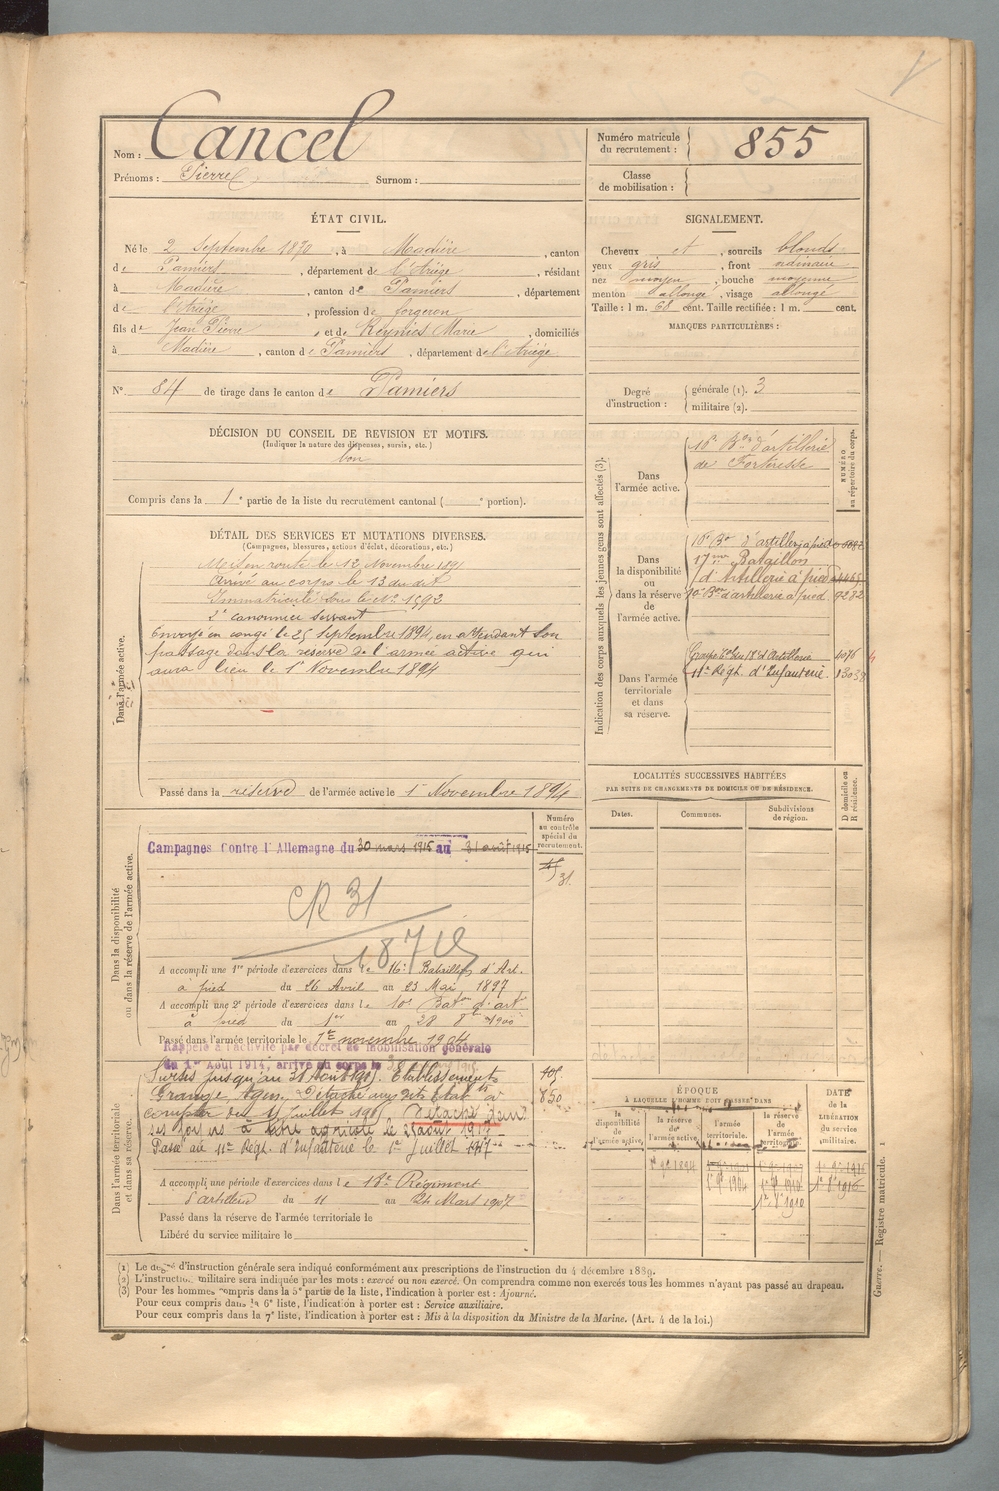 Nom : Cancel
Prénoms : Pierre Surnom :
Numéro matricule du recrutement : 855
Classe de mobilisation :
ÉTAT CIVIL.
Né le 2 Septembre 1870, à Madière, canton
de Pamiers, département de l'Ariège, résidant
à Madière, canton de Pamiers, département
de l'Ariège, profession de forgeron
fils de Jean Pierre, et de Marie, domiciliés
à Madière, canton de Pamiers, département de l'Ariège
N° 84 de tirage dans le canton de Pamiers
DÉCISION DU CONSEIL DE REVISION ET MOTIFS.
(Indiquer la nature des dispenses, sursis, etc.)
bon
Compris dans la 1e partie de la liste du recrutement cantonal ( e portion).
DÉTAIL DES SERVICES ET MUTATIONS DIVERSES.
(Campagnes, blessures, actions d'éclat, décorations, etc.)
Dans l'armée active.
Mis en route le 12 Novembre 1891
Arrivé au corps le 13 du dit
Immatriculé sous le N° 1592
2e canonnier servant
Envoyé en congé le 25 Septembre 1894, en attendant son
passage dans la réserve de l'armée active qui
aura lieu le 1er Novembre 1894
Passé dans la réserve de l'armée active le 1er Novembre 1894
Dans la disponibilité ou dans la réserve de l'armée active.
Numéro au contrôle spécial du recrutement.
Campagnes Contre l'Allemagne du 30 mars 1915 au 31 août 1915
31
CR 31
A accompli une 1re période d'exercices dans le 16e Bataillon d'Art.
à pied du 26 Avril au 23 Mai 1897
A accompli une 2e période d'exercices dans le 10e Baton d'art
à pied du 1er au 28 8bre 1900
Passé dans l'armée territoriale le 1er novembre 1904
Rappelé à l'activité par décret de mobilisation générale
du 1er Août 1914, arrivé au corps le
Dans l'armée territoriale et dans sa réserve.
Sursis jusqu'au 31 Août 1915. Etablissements
Grange, Agen. Détaché aux dits Etabts à
compter du 15 Juillet 1915. Détaché dans
ses foyers à titre agricole le 25 août 1917
Passé au 11e Régt. d'Infanterie le 1er Juillet 1917
850
A accompli une période d'exercices dans le 18e Régiment
d'artillerie du 11 au 24 Mars 1907
Passé dans la réserve de l'armée territoriale le
Libéré du service militaire le
SIGNALEMENT.
Cheveux et, sourcils blonds
yeux gris, front ordinaire
nez moyen, bouche moyenne
menton allongé, visage allongé
Taille : 1 m. 68 cent. Taille rectifiée : 1 m. cent.
MARQUES PARTICULIÈRES :
Degré d'instruction : générale (1). 3
militaire (2).
Indication des corps auxquels les jeunes gens sont affectés (3).
NUMÉRO au répertoire du corps.
Dans l'armée active.
16e Bon d'artillerie
de Forteresse
Dans la disponibilité ou dans la réserve de l'armée active.
16e Bon d'artillerie à pied
17me Bataillon
d'Artillerie à pied
10e Bon d'artillerie à pied. 9282
Dans l'armée territoriale et dans sa réserve.
Groupe du 18e d'Artillerie 4076
11e Régt. d'Infanterie.
LOCALITÉS SUCCESSIVES HABITÉES
PAR SUITE DE CHANGEMENTS DE DOMICILE OU DE RÉSIDENCE.
D domicile ou R résidence.
Dates. Communes. Subdivisions de région.
ÉPOQUE
À LAQUELLE L'HOMME DOIT PASSER DANS
DATE de la LIBÉRATION du service militaire.
la disponibilité de l'armée active. la réserve de l'armée active. l'armée territoriale. la réserve de l'armée territoriale.
(1) Le degré d'instruction générale sera indiqué conformément aux prescriptions de l'instruction du 4 décembre 1889.
(2) L'instruction militaire sera indiquée par les mots : exercé ou non exercé. On comprendra comme non exercés tous les hommes n'ayant pas passé au drapeau.
(3) Pour les hommes compris dans la 5e partie de la liste, l'indication à porter est : Ajourné.
Pour ceux compris dans la 6e liste, l'indication à porter est : Service auxiliaire.
Pour ceux compris dans la 7e liste, l'indication à porter est : Mis à la disposition du Ministre de la Marine. (Art. 4 de la loi.)
Guerre. — Registre matricule. 1